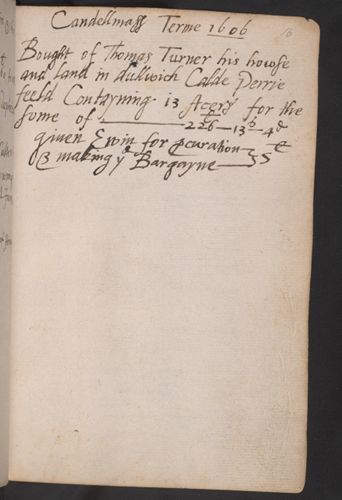 Candellmass Terme 1606
Bought of Thomas Turner his howse
and land in dullwich Calde Perrie
feeld Contayning 13 Acers for the
some of 226ˡ - 13ˢ - 4ᵈ
given Ewin for pcuration
& making yᵉ Bargayne 5ˡ